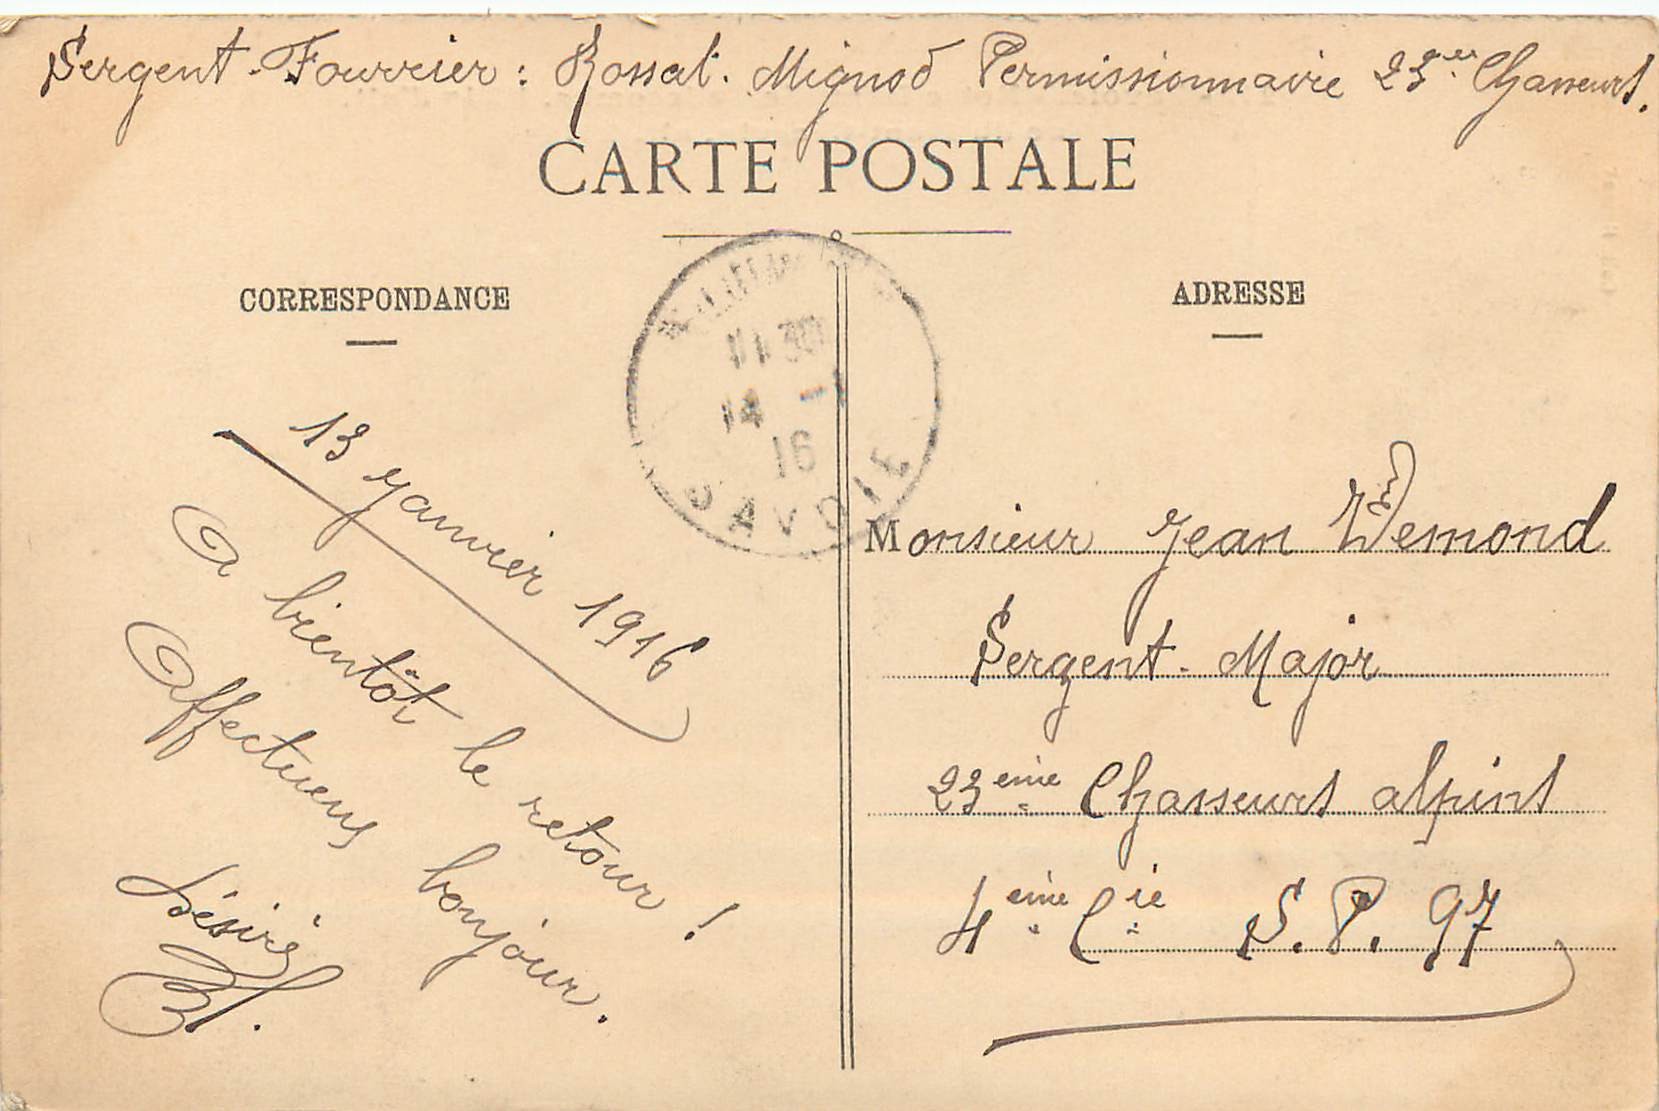 Sergent-Fourrier: Rossat. Mignod Permissionnaire 23e Chasseurs.
CARTE POSTALE
CORRESPONDANCE
ADRESSE
11 30
14 -1
16
SAVOIE
13 Janvier 1916
A bientôt le retour !
Affectueux bonjour.
Désiré
Monsieur Jean Wemond
Sergent-Major
23ème Chasseurs alpins
4ème Cie S.P. 97